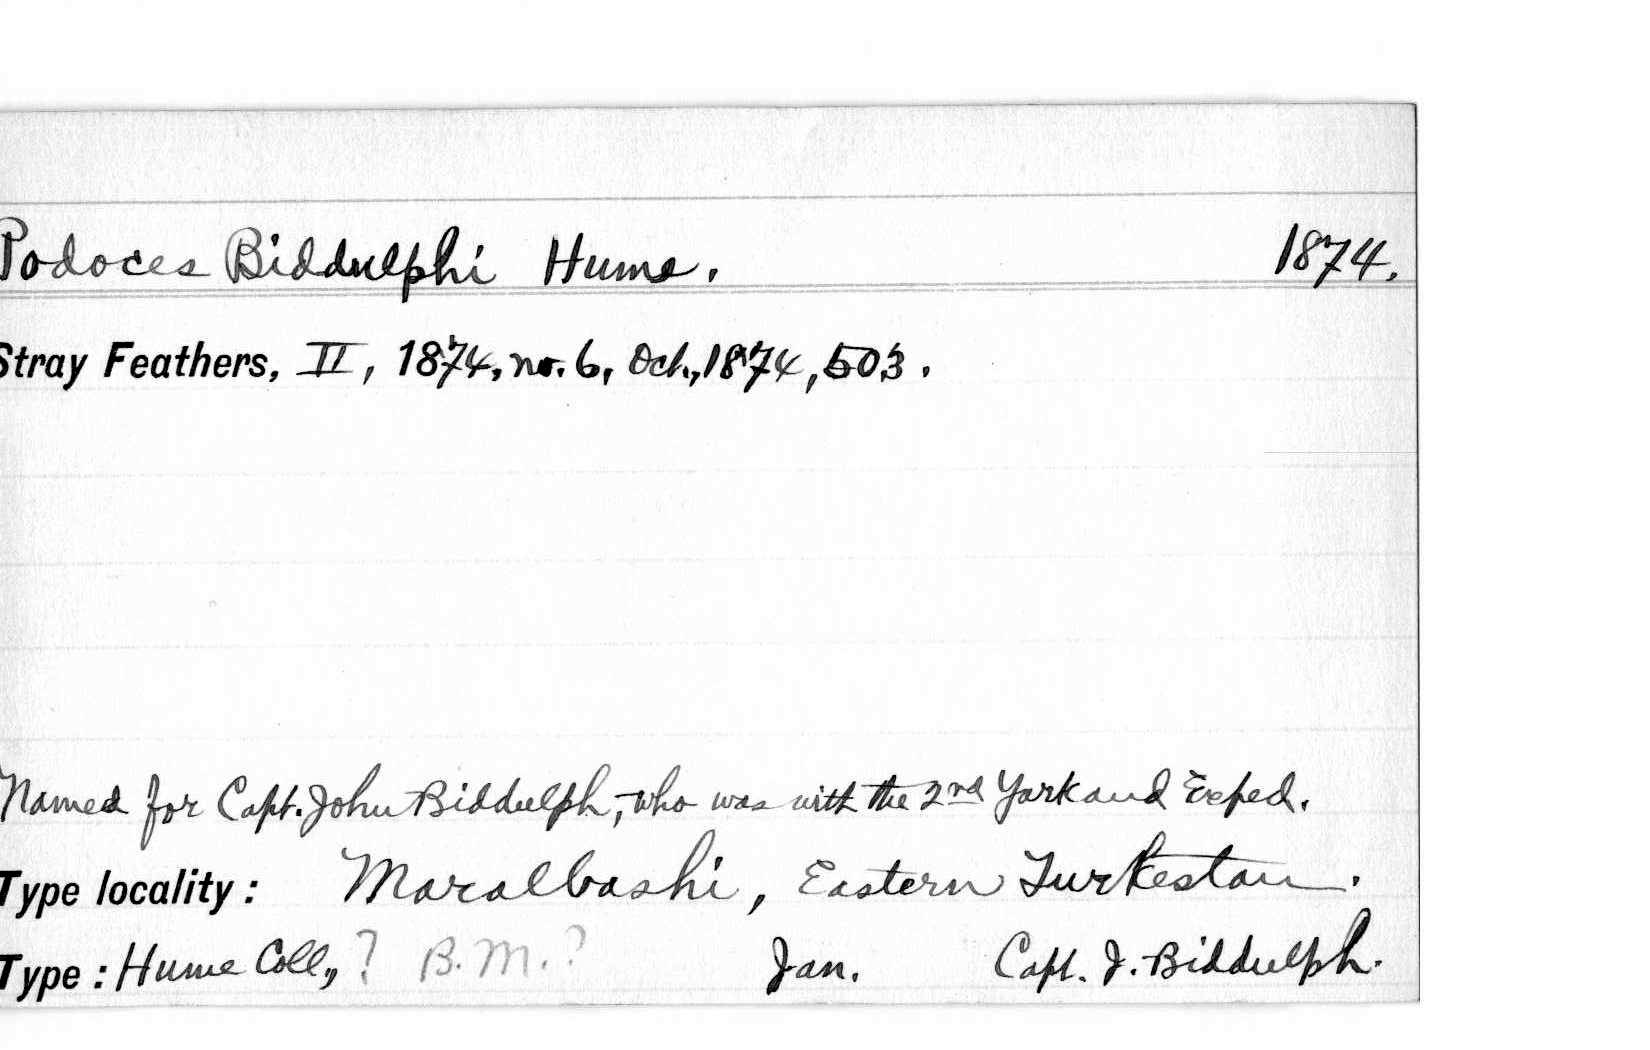 Podoces Biddulphi Hume. 1874.
Stray Feathers, II, 1874, no. 6, Oct., 1874, 503.
Named for Capt. John Biddulph, who was with the 2nd Yarkand Exped.
Type locality: Maralbashi, Eastern Turkestan.
Type: Hume Coll., ? B.M.? Jan. Capt. J. Biddulph.